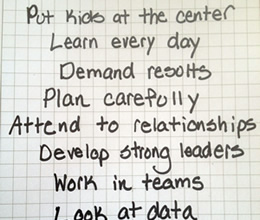 Put kids at the center
Learn every day
Demand results
Plan carefully
Attend to relationships
Develop strong leaders
Work in teams
Look at data